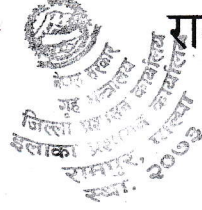 रा
नेपाल सरकार
गृह मन्त्रालय
जिल्ला प्रशासन कार्यालय
इलाका प्रशासन कार्यालय
रामपुर, पाल्पा
स्था. २०७३